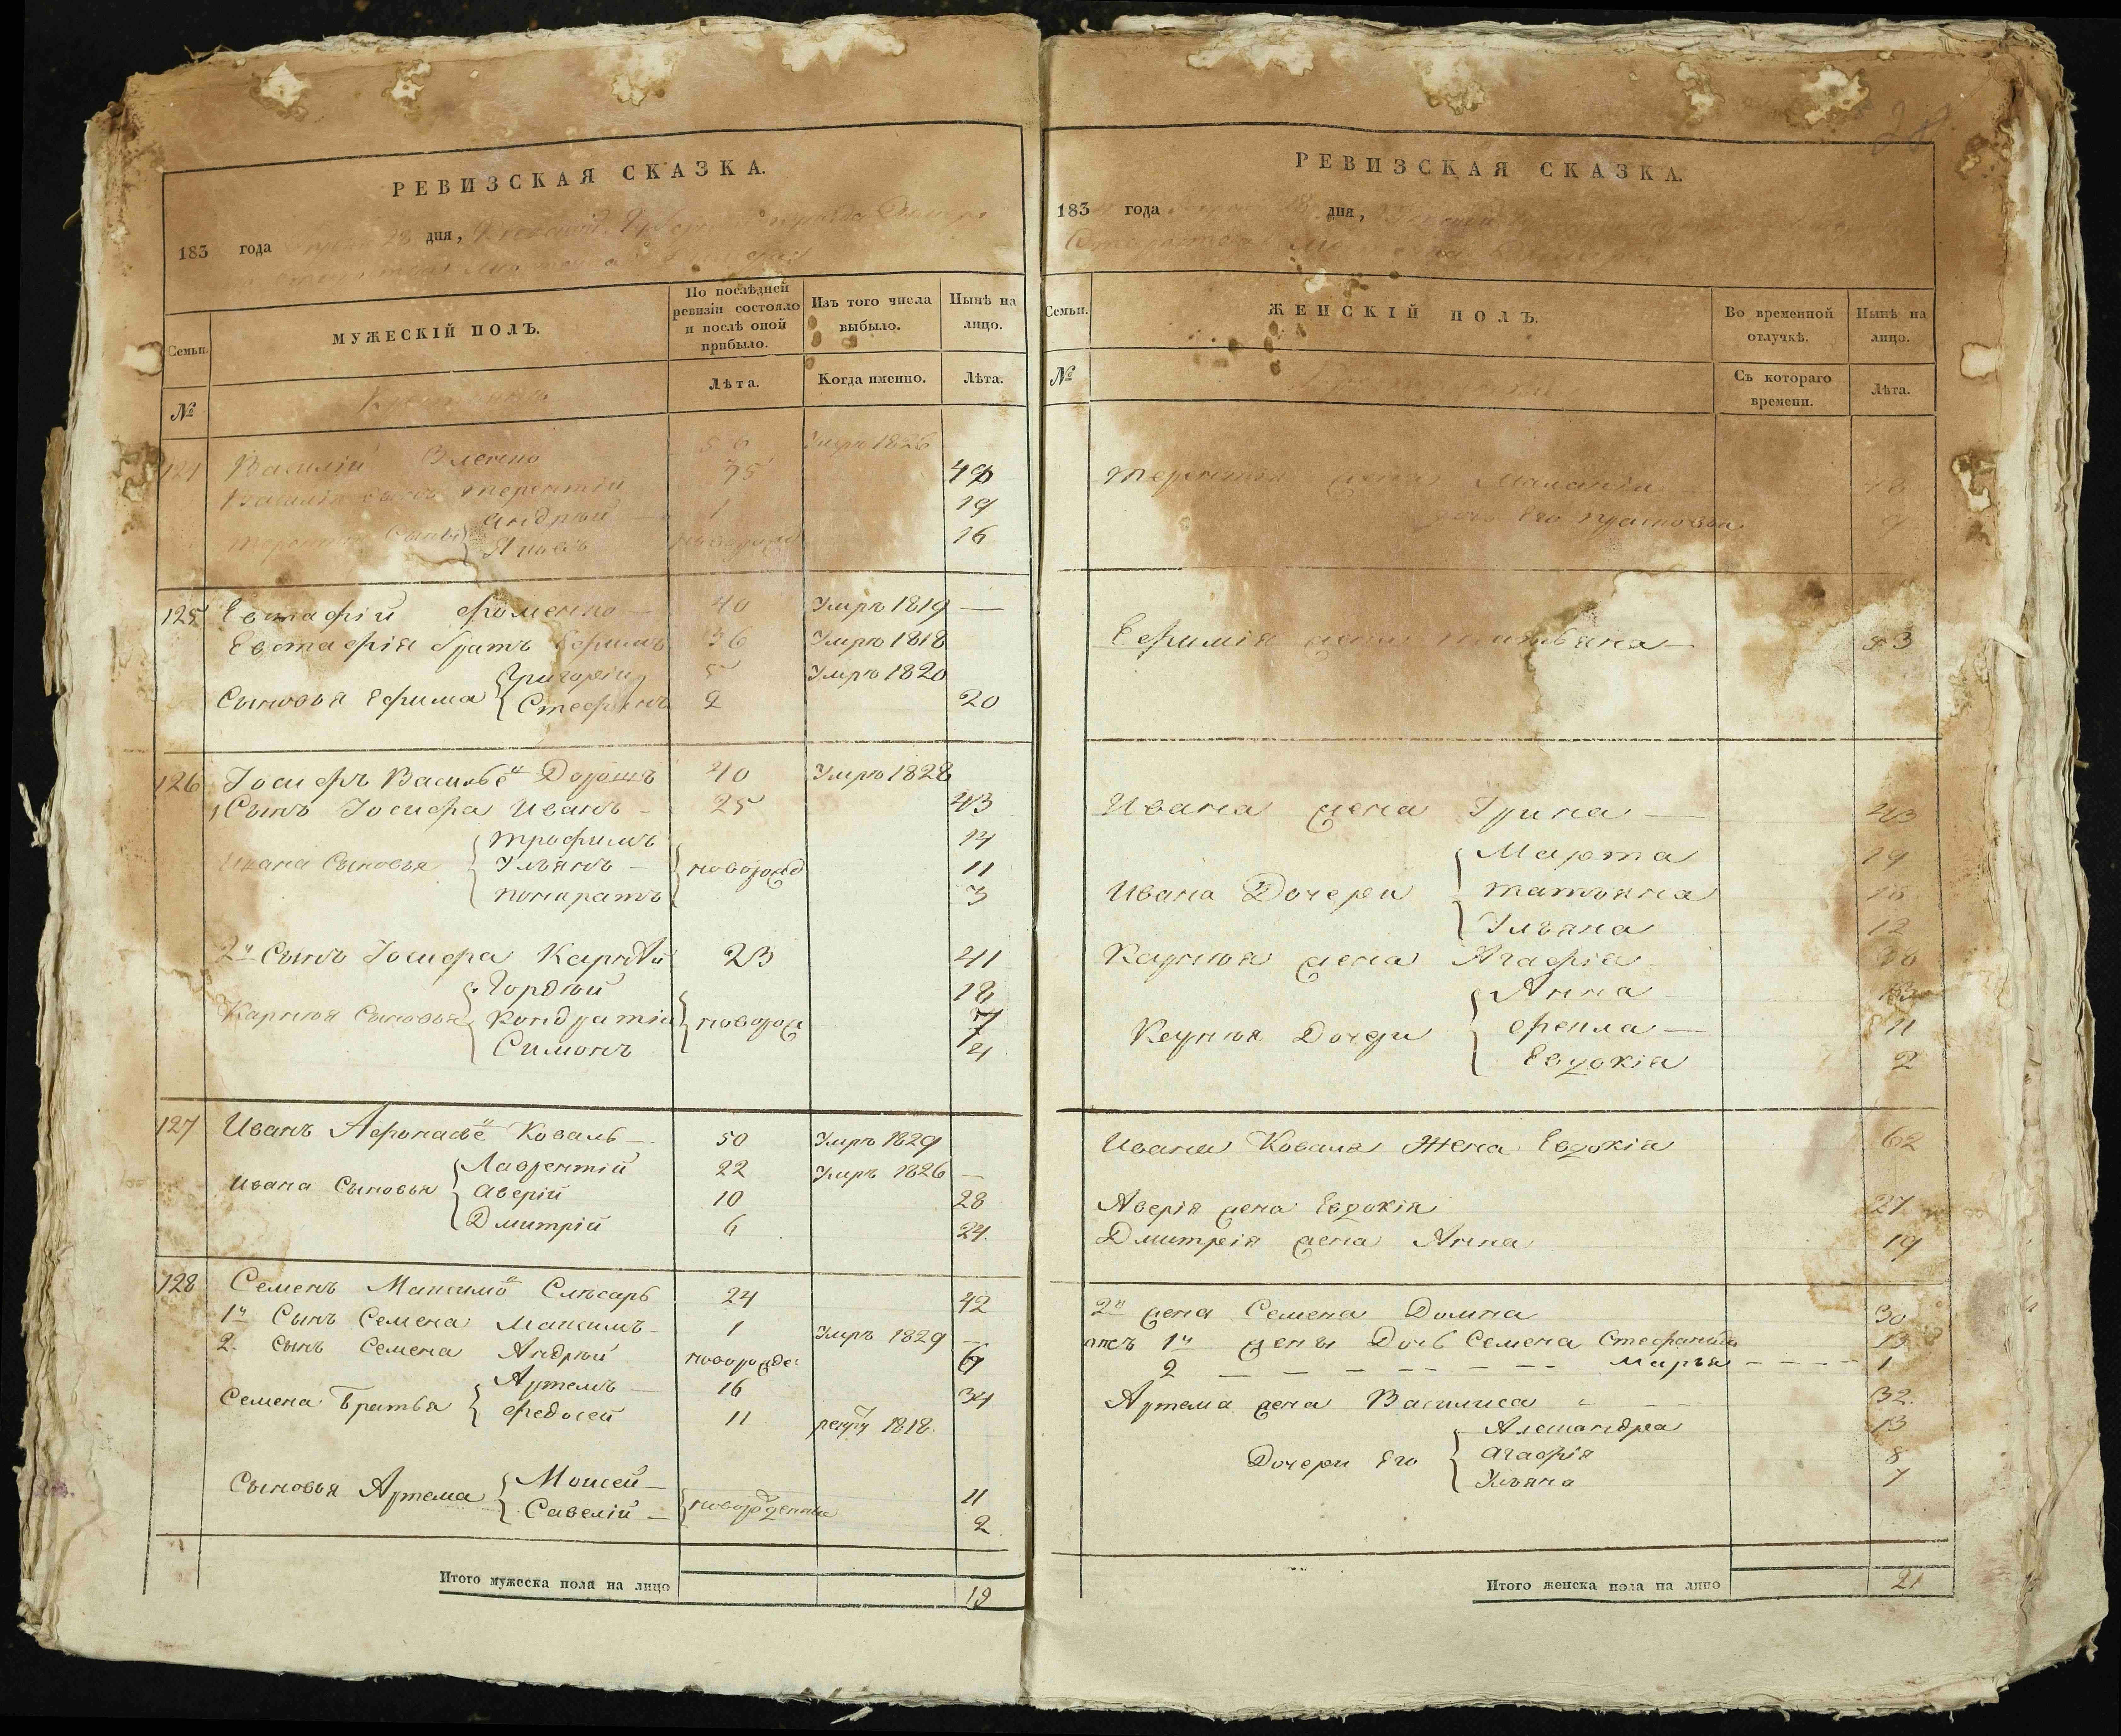 РЕВИЗСКАЯ СКАЗКА.
183 года 28 дня,
Семьи.
МУЖЕСКІЙ ПОЛЪ.
По послѣдней ревизіи состояло и послѣ оной прибыло.
Изъ того числа выбыло.
Нынѣ на лицо.
№
Лѣта.
Когда именно.
Лѣта.
Василій 56 Умре 1826
Василія сынъ Терентій 35
Андрей 1 19
Яковъ 16
125 Евстафій Фоменко — 40 Умръ 1819 —
Евстафія братъ Ефимъ 36 Умре 1818
Сыновья Ефима { Григорій 5 Умре 1820
Стефанъ 2 20
126 Іосифъ Василье͏в Дорошъ 40 Умре 1828
1 Сынъ Іосифа Иванъ - 25 43
Ивана Сыновья { Трофимъ 14
Ульянъ — новорожд 11
Понкратъ 3
2й Сынъ Іосифа Карпѣй 23 41
Карпея Сыновья { Гордѣй 18
Кондратій новорож 7
Симонъ 4
127 Иванъ Афонасье Коваль — 50 Умръ 1829
Ивана Сыновья { Лаврентій 22 Умръ 1826 —
Аверій 10 28
Дмитрій 6 24.
128 Семенъ Максимо Слѣсарь 24 42
1й Сынъ Семена Максимъ - 1 Умръ 1829 —
2. Сынъ Семена Андрей новорожде:
Семена Братья { Артемъ — 16 34
Федосей 11 рекру 1818.
Сыновья Артема { Мойсей — новорожденны 11
Савелій — 2
Итого мужеска пола на лицо 19
РЕВИЗСКАЯ СКАЗКА.
183 года дня,
Семьи.
ЖЕНСКІЙ ПОЛЪ.
Во временной отлучкѣ.
Нынѣ на лицо.
№
Съ котораго времени.
Лѣта.
Терентія жена Маланія 48
Ефимія жена Татьяна — 53
Ивана жена Ірина — 43
Ивана Дочери { Марта 19
Татьяна
Ульяна 12
Карпея жена Агафія
Карпея Дочери { Анна
Фекла — 11
Евдокія 2
Ивана Коваля Жена Евдокія 62
Аверія жена Евдокія 27
Дмитрія жена Анна 19
2я жена Семена Домна 30
отъ 1й жены Дочь Семена Стефанида 13
2 — — — — — — Марья - - - - 1
Артема жена Василиса 32.
Дочери Его { Александра 13
Агафія 8
Ульяна 7
Итого женска пола на лицо 21